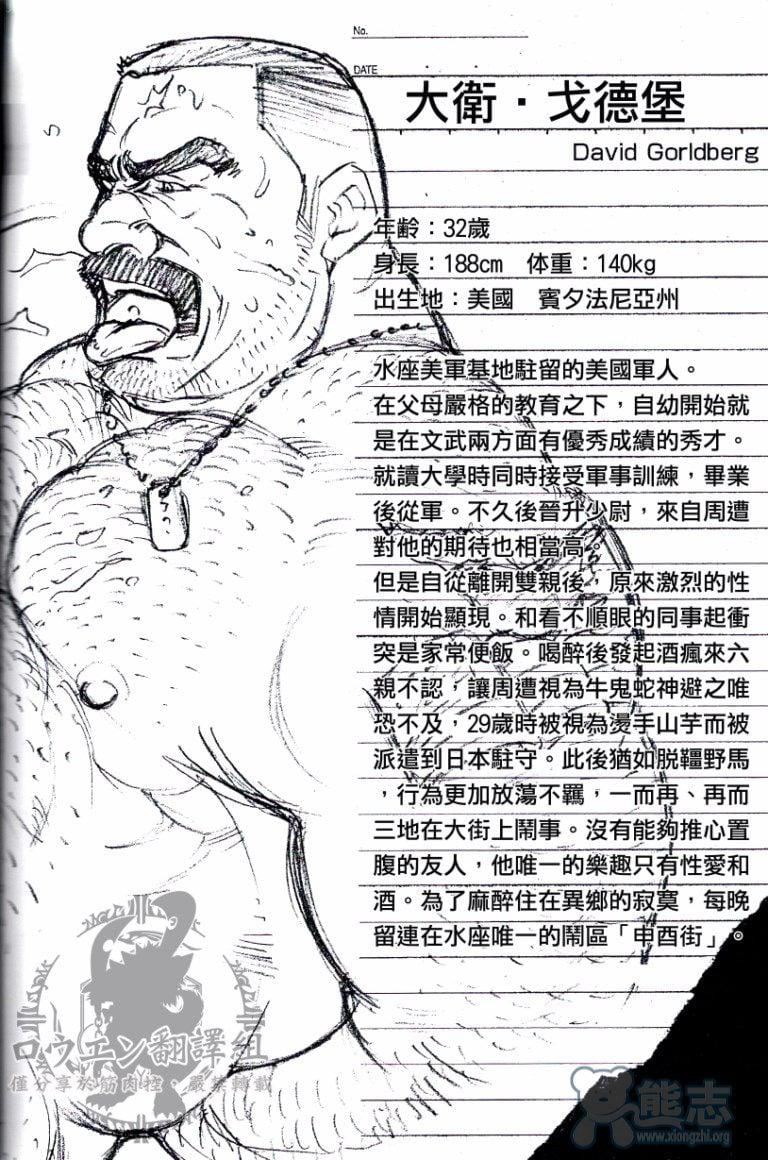 No.
DATE
大衛・戈德堡
David Gorldberg
年齢：32歲
身長：188cm 体重：140kg
出生地：美國 賓夕法尼亞州
水座美軍基地駐留的美國軍人。
在父母嚴格的教育之下，自幼開始就
是在文武兩方面有優秀成績的秀才。
就讀大學時同時接受軍事訓練，畢業
後從軍。不久後晉升少尉，來自周遭
對他的期待也相當高。
但是自從離開雙親後，原來激烈的性
情開始顯現。和看不順眼的同事起衝
突是家常便飯。喝醉後發起酒瘋來六
親不認，讓周遭視為牛鬼蛇神避之唯
恐不及，29歲時被視為燙手山芋而被
派遣到日本駐守。此後猶如脱韁野馬
，行為更加放蕩不羈，一而再、再而
三地在大街上鬧事。沒有能夠推心置
腹的友人，他唯一的樂趣只有性愛和
酒。為了麻醉住在異鄉的寂寞，每晚
留連在水座唯一的鬧區「申酉街」。
ロウエン翻譯組
僅分享於筋肉控・嚴禁轉載
熊志
www.xiongzhi.org